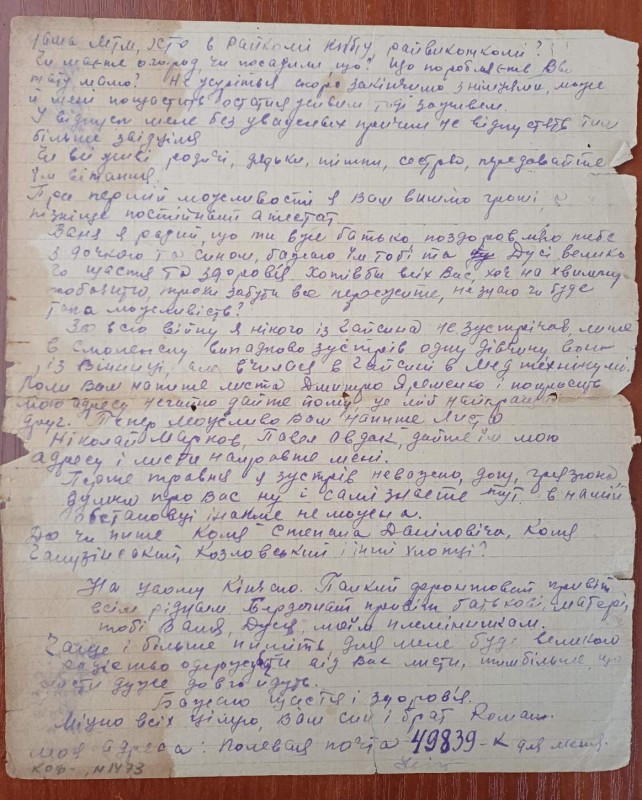 хто в Райкомі КП(б)У, райвиконкомі?
Чи маєте огород чи посадили що? Що поробляєте Ви
тату мамо? Не журіться скоро закінчимо з німцями, може
й мені пощастить остатися живим тоді заживем.
У відпуск мене без уважених причин не відпустять тим
більше звідціля
Чи всі живі родичі, дядьки, тітки, сестри, передавайте
їм вітання.
При першій можливості я Вам вишлю гроші,
пізніще постійний атестат.
Ваня я радий, що ти вже батько поздоровляю тебе
з дочкою та сином, бажаю їм тобі та Дусі велико
го щастя та здоровія. Хотівби всіх Вас, хоч на хвилину
побачити, трохи забути все пережите, незнаю чи буде
така можливість?
За всю війну я нікого із Гайсина не зустрічав, лише
в Смоленську випадково зустрів одну дівчину вона
із Вінниці, вчилася в Гайсині в Мед технікумі.
Коли Вам напише листа Дмитро Яременко і попросить
мою адресу негайно дайте йому це мій найкращий
друг. Тепер можливо Вам напише листа
Ніколай Марков, Павел Авдак, дайте їм мою
адресу і листи направте мені.
Перше травня я зустрів неважно, дощ, грязюка
думки про Вас ну і самі знаєте тут в нашій
обстановці інакше не можна.
Да чи пише Коля Степана Даніловіча, Коля
Козловський і інші хлопці?
На цьому Кінчаю. Палкий фронтовий привіт
всім рідним. Сердечний привіт батькові, матері,
тобі Ваня, Дуся, моїм племінникам.
Чаще і більше пишіть, для мене буде великою
радістю одержувати від Вас листи, тимбільше, що
листи дуже довго йдуть.
Бажаю щастя і здоровія.
Міцно всіх цілую, Ваш син і брат Роман.
Моя адреса: Полевая почта 49839-К для мене.
КВФ- 1473